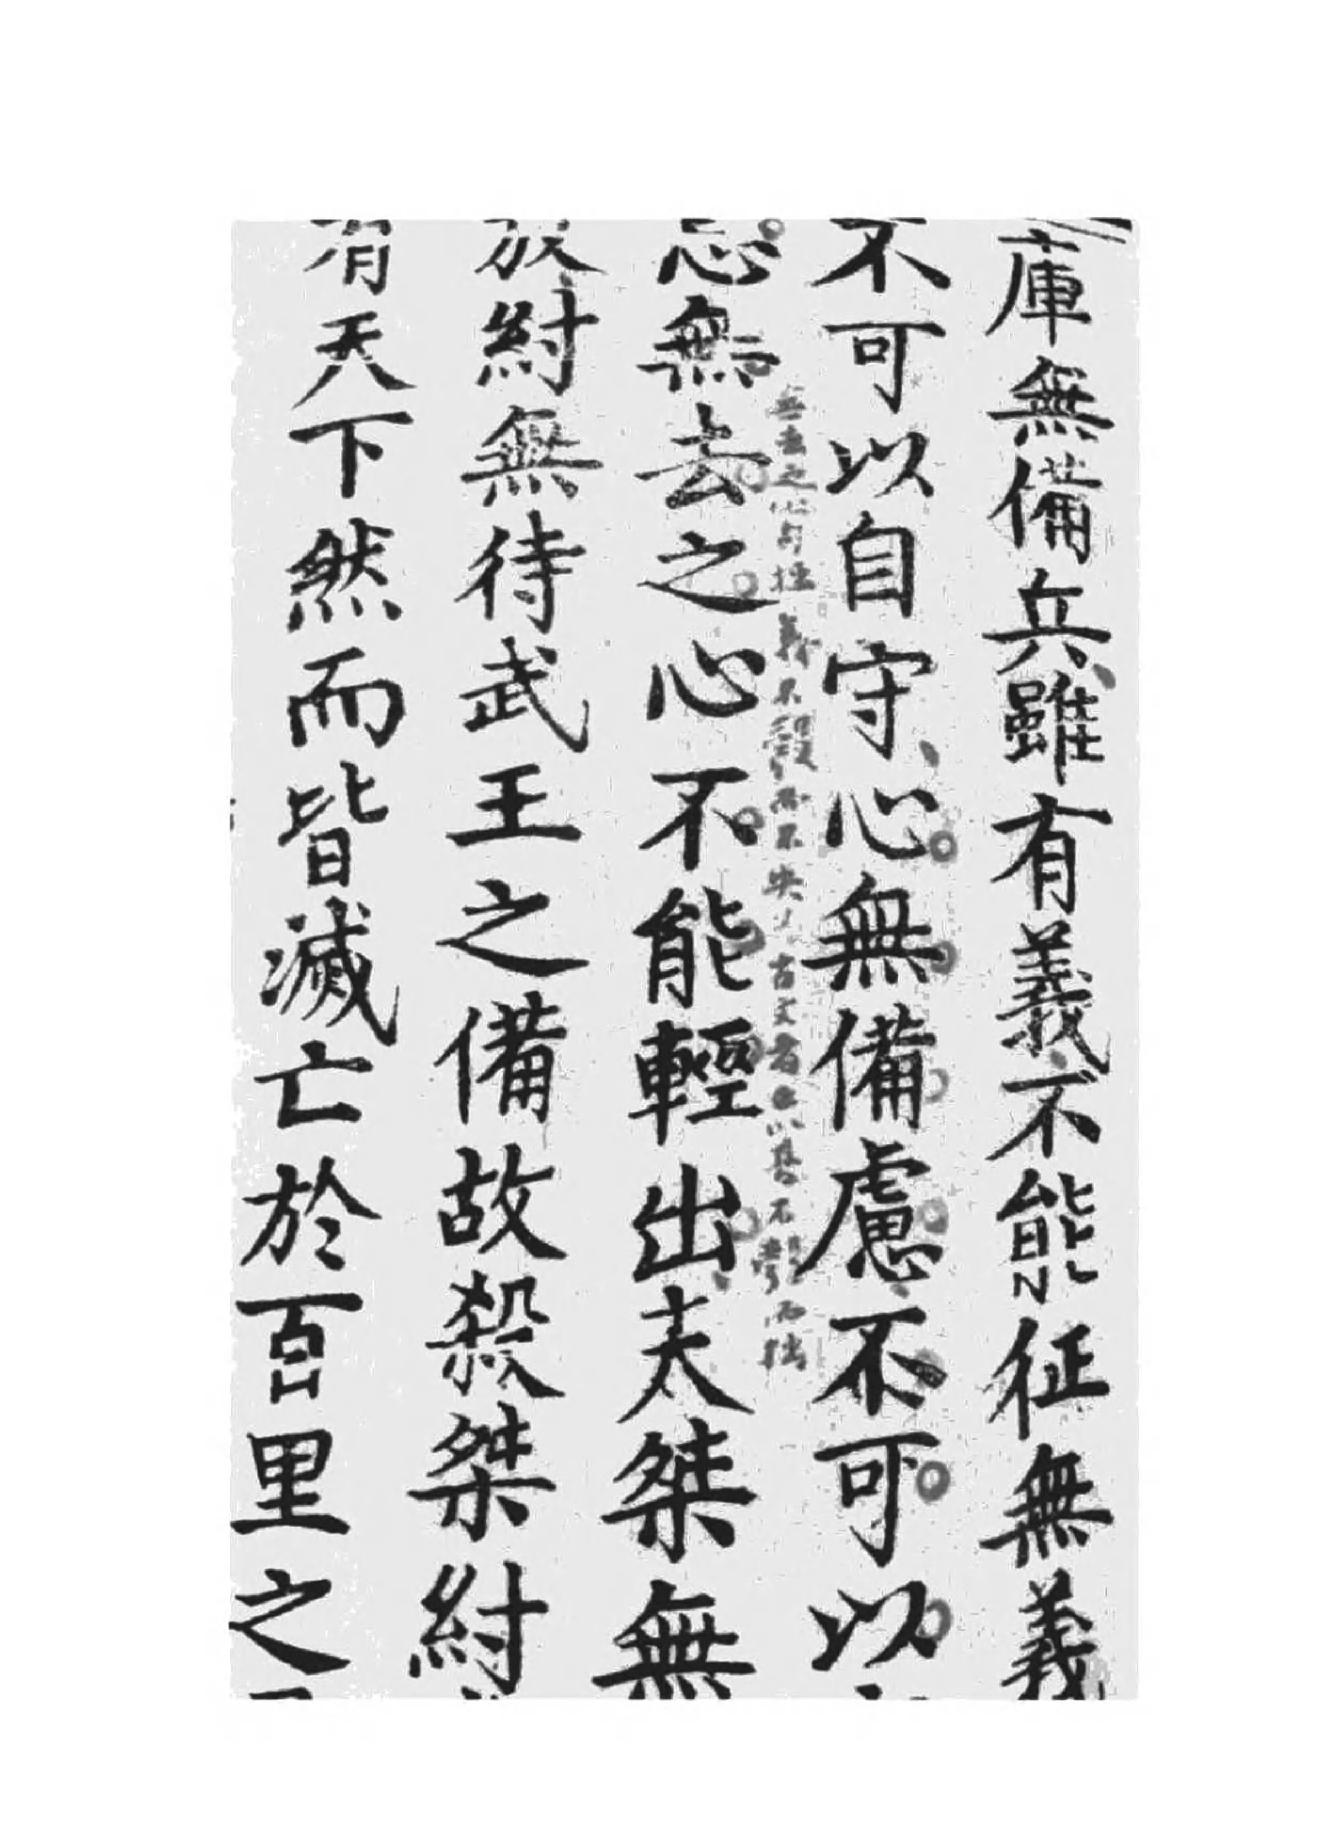 庫無備兵雖有義不能征無義
不可以自守心無備慮不可以
無去之心句拙 義不 而不 古文者 以其不 而拙
忌無去之心不能輕出夫桀無
放紂無待武王之備故殺桀紂
有天下然而皆滅亡於百里之